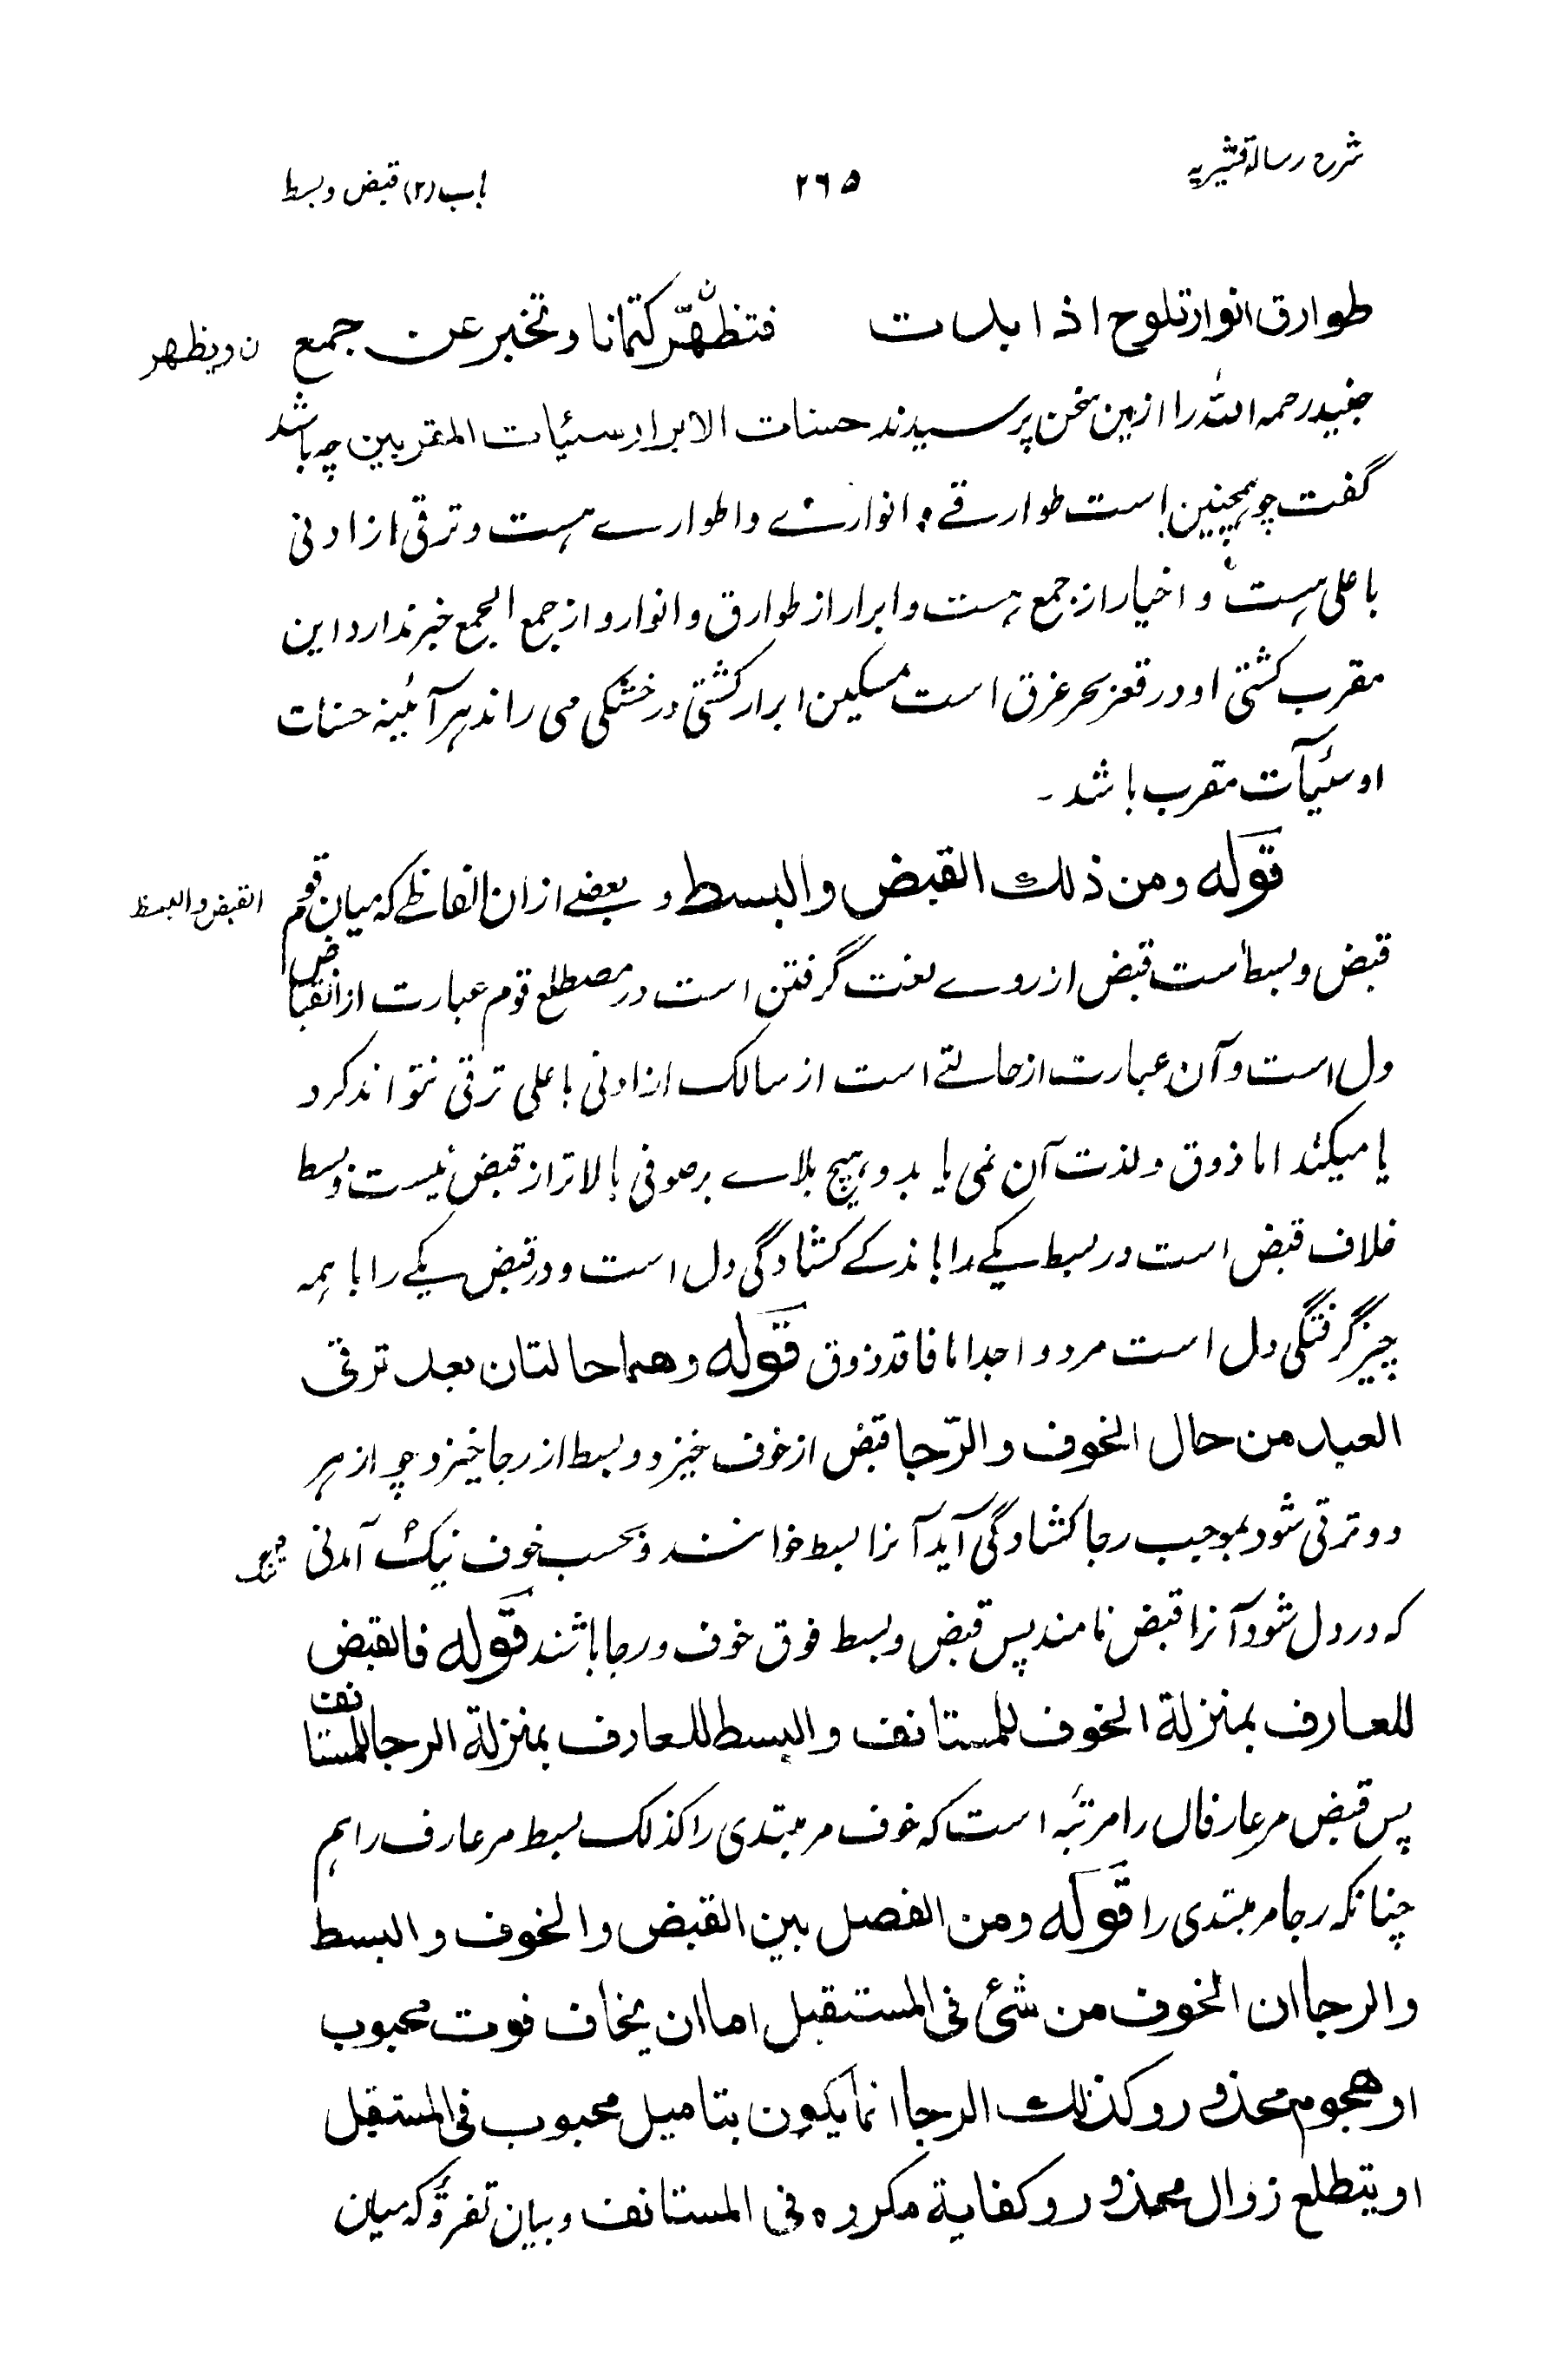 شرح رسالة قشیریه
۲۶۵
باب (۲) قبض و بسط
طوارق انوار تلوح اذا بدت فتظهّر کتمانا و تخبر عن جمع
ن ویظهر
جنید رحمه الله را ازین سخن پرسیدند حسنات الابرار سیئات المقربین چه باشد
گفت چو همچنین است طوارقے و انوارے و اطوارے هست و ترقی از ادنی
با علی هست و اخیار از جمع هست و ابرار از طوارق و انوار و از جمع الجمع خبر ندارد این
مقرب کشتی او در قعر بحر غرق است مسکین ابرار کشتی در خشکی می راند هرآئینه حسنات
او سیّآت مقرب باشد ۔
قوله ومن ذلك القبض والبسط و بعضے ازان الفاظے که میان قوم
القبض والبسط
قبض و بسط است قبض از روے لغت گرفتن است در مصطلح قوم عبارت از انقباض
دل است و آن عبارت از حالتے است از سالک از ادنی باعلی ترقی نتواند کرد
یا میکند اما ذوق و لذت آن نمی یابد و هیچ بلاے بر صوفی بالاتر از قبض نیست و بسط
خلاف قبض است در بسط یکے را باندکے کشادگی دل است و در قبض یکے را با همه
چیز گرفتگی دل است مرد واجد اما فاقد ذوق قوله وهما حالتان بعد ترقی
العبد من حال الخوف والرّجا قبض از خوف خیزد و بسط از رجا خیزد چو از هر
دو ترقی شود بموجب رجا کشادگی آید آنرا بسط خوانند و بحسب خوف نیک آمدنی
که در دل شود آنرا قبض نامند پس قبض و بسط فوق خوف و رجا باشند قوله فالقبض
للعارف بمنزلة الخوف للمستانف والبسط للعارف بمنزلة الرجا للمستانف
پس قبض مر عارفان را مرتبه است که خوف مر مبتدی را کذلک بسط مر عارف را هم
چنانکه رجا مر مبتدی را قوله ومن الفصل بین القبض والخوف والبسط
والرجا ان الخوف من شئ فی المستقبل اما ان یخاف فوت محبوب
او هجوم محذور وکذلك الرجا انما یکون بتامیل محبوب فی المستقبل
او یتطلع زوال محذور وکفایة مکروه فی المستانف و بیان تفرقهٔ که میان